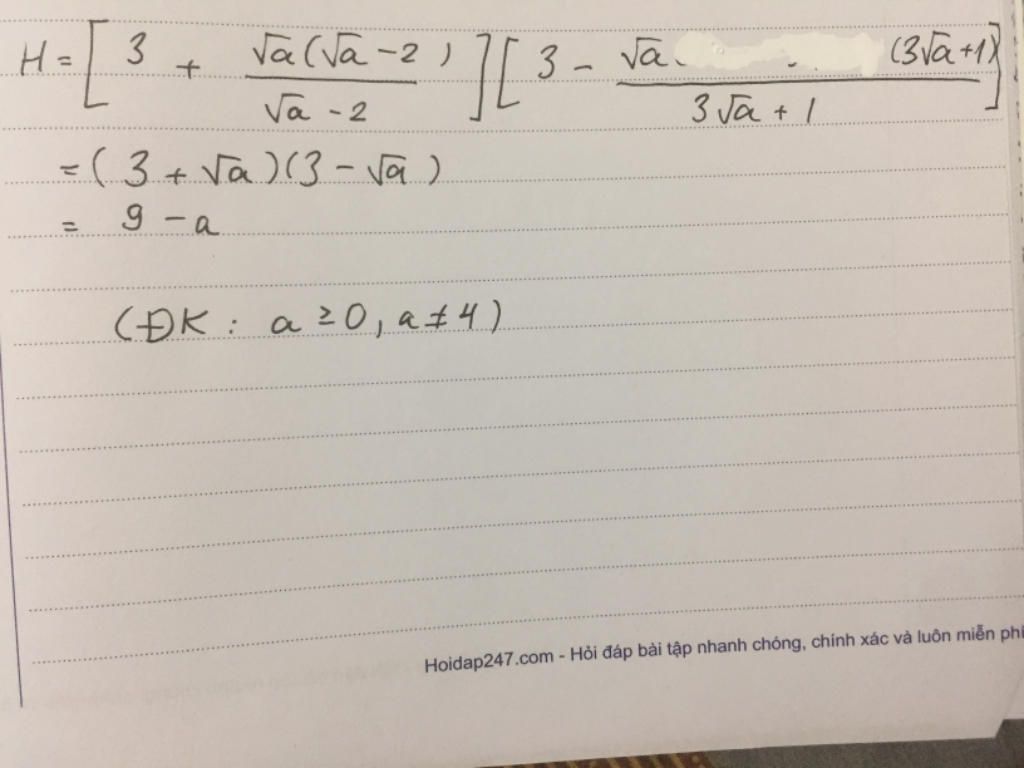 H = [ 3 + √a(√a - 2) / √a - 2 ] [ 3 - √a (3√a + 1) / 3√a + 1 ]
= ( 3 + √a )(3 - √a )
= 9 - a
(ĐK : a ≥ 0, a ≠ 4 )
Hoidap247.com - Hỏi đáp bài tập nhanh chóng, chính xác và luôn miễn phí